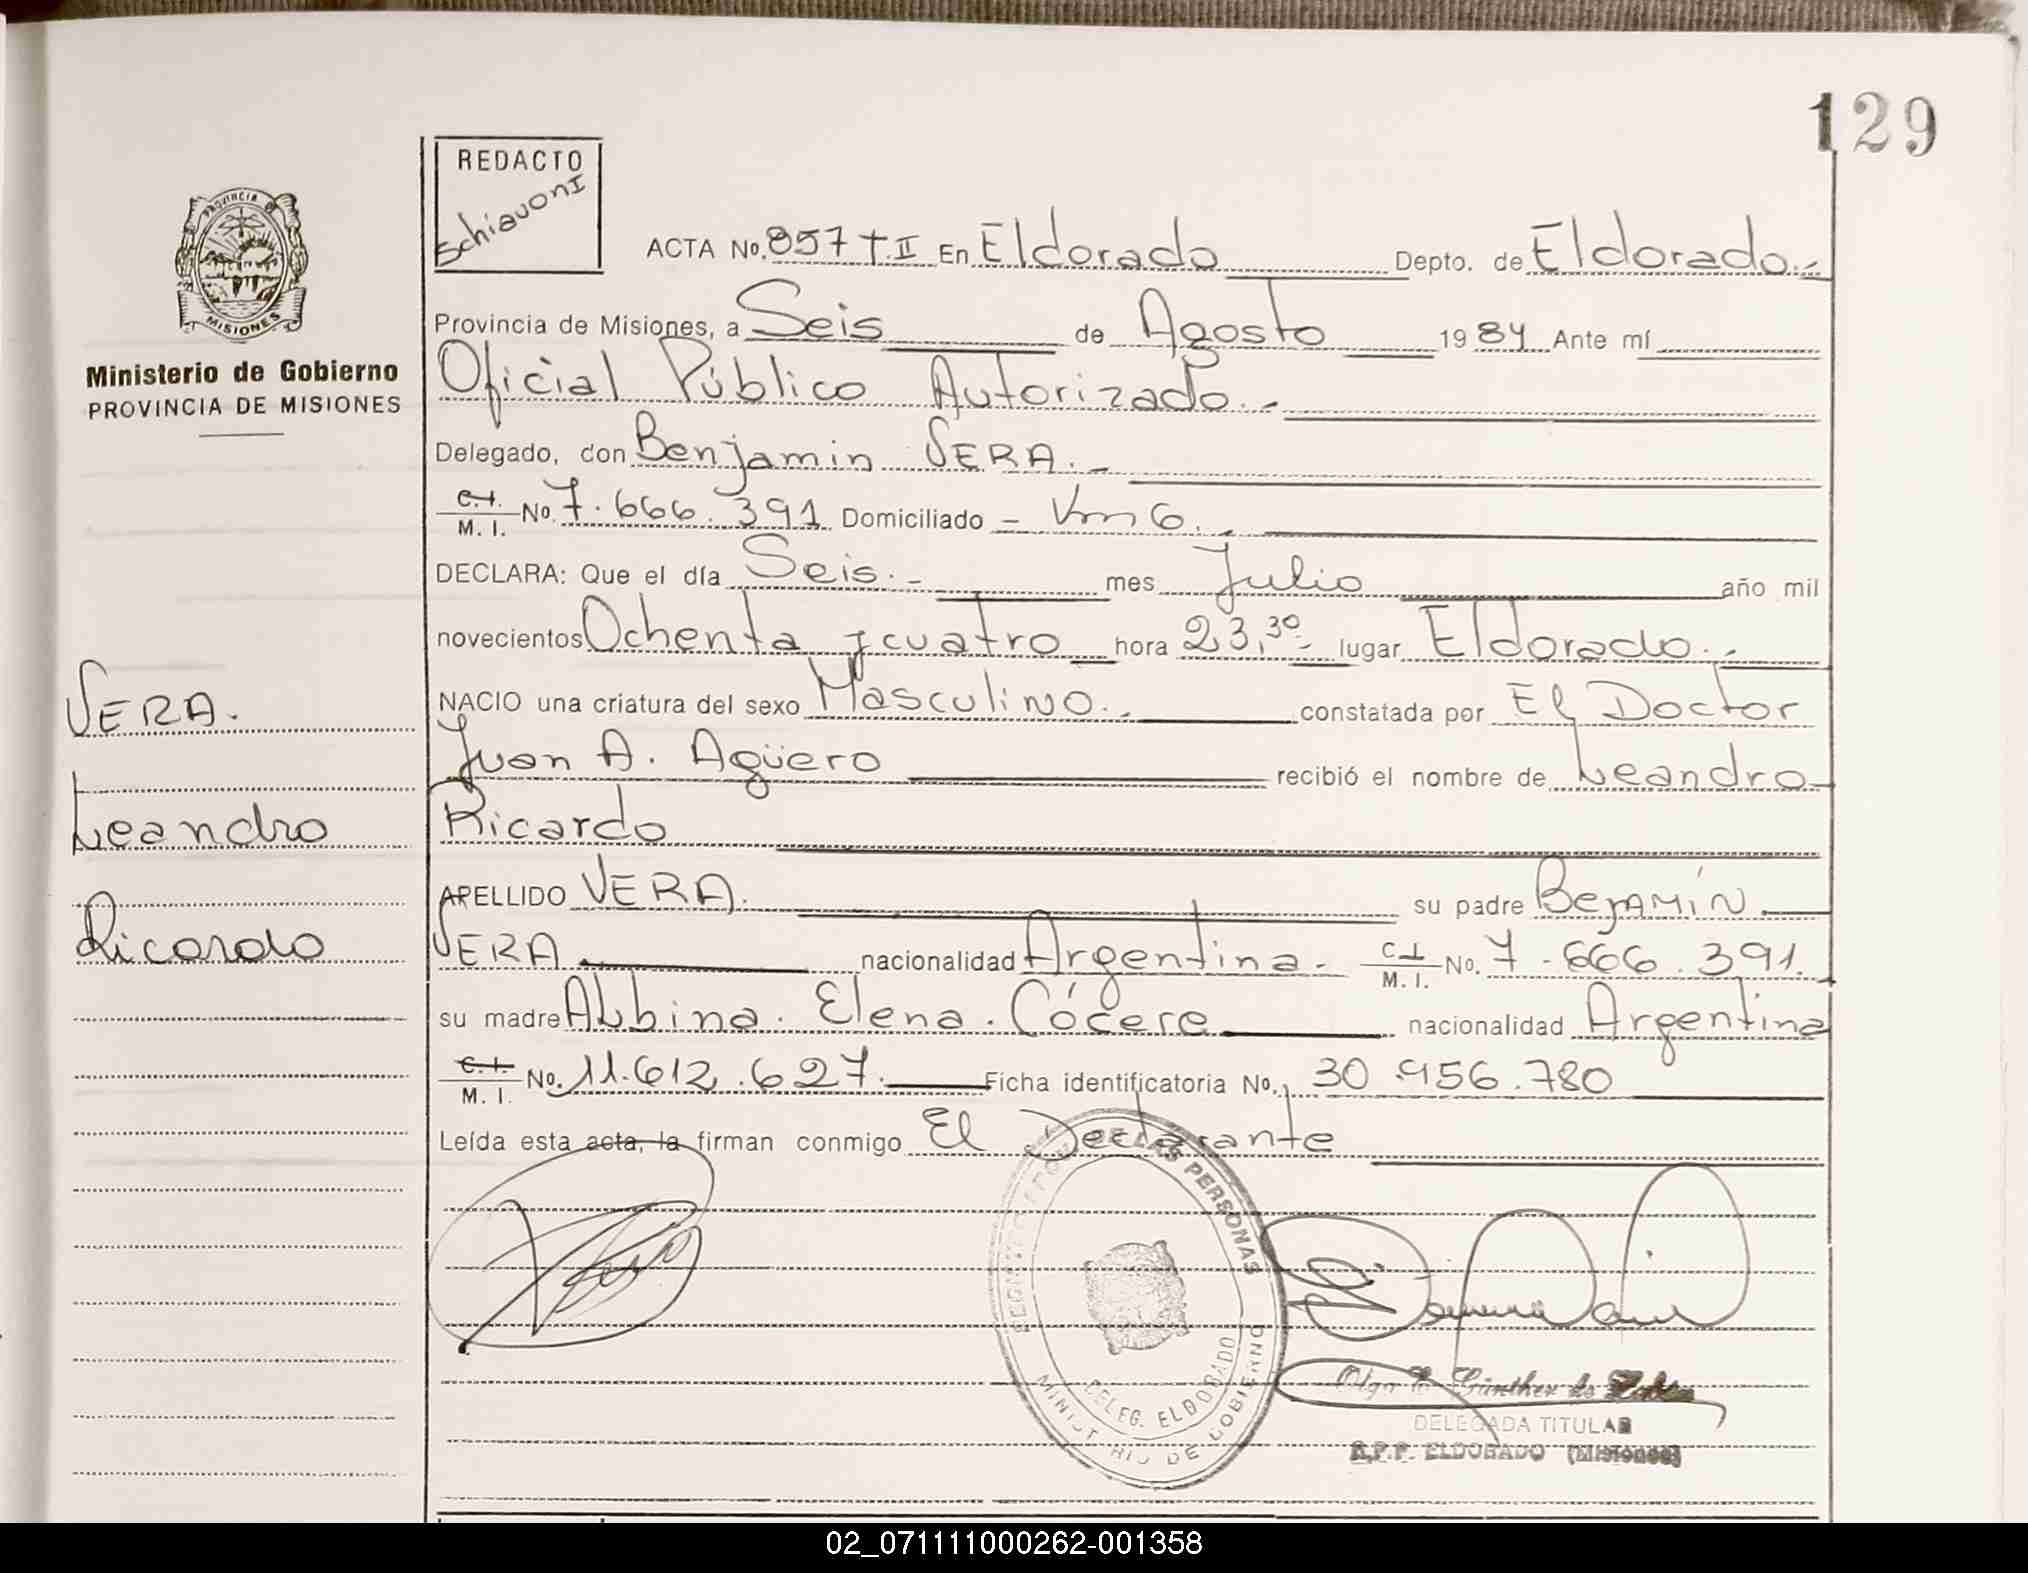 129
REDACTO
Schiavoni
PROVINCIA DE
MISIONES
Ministerio de Gobierno
PROVINCIA DE MISIONES
VERA.
Leandro
Ricardo
ACTA No. 857 T.II En Eldorado Depto. de Eldorado.-
Provincia de Misiones, a Seis de Agosto 1984 Ante mí
Oficial Público Autorizado.-
Delegado, don Benjamin VERA.-
C.I. M. I. No. 7.666.391 Domiciliado - Km 6.-
DECLARA: Que el día Seis.- mes Julio año mil
novecientos Ochenta y cuatro hora 23,30- lugar Eldorado.-
NACIO una criatura del sexo Masculino.- constatada por El Doctor
Juan A. Agüero recibió el nombre de Leandro
Ricardo
APELLIDO VERA. su padre Bejamín
VERA nacionalidad Argentina.- C.I. M. I. No. 7.666.391.
su madre Albina. Elena. Cócere nacionalidad Argentina
C.I. M. I. No. 11.612.627. Ficha identificatoria No. 30.956.780
Leída esta acta, la firman conmigo El Declarante
DE LAS PERSONAS
DELEG. ELDORADO
MINISTERIO DE GOBIERNO
Olga E. Günther de
DELEGADA TITULAR
R.P.P. ELDORADO (Misiones)
02_071111000262-001358